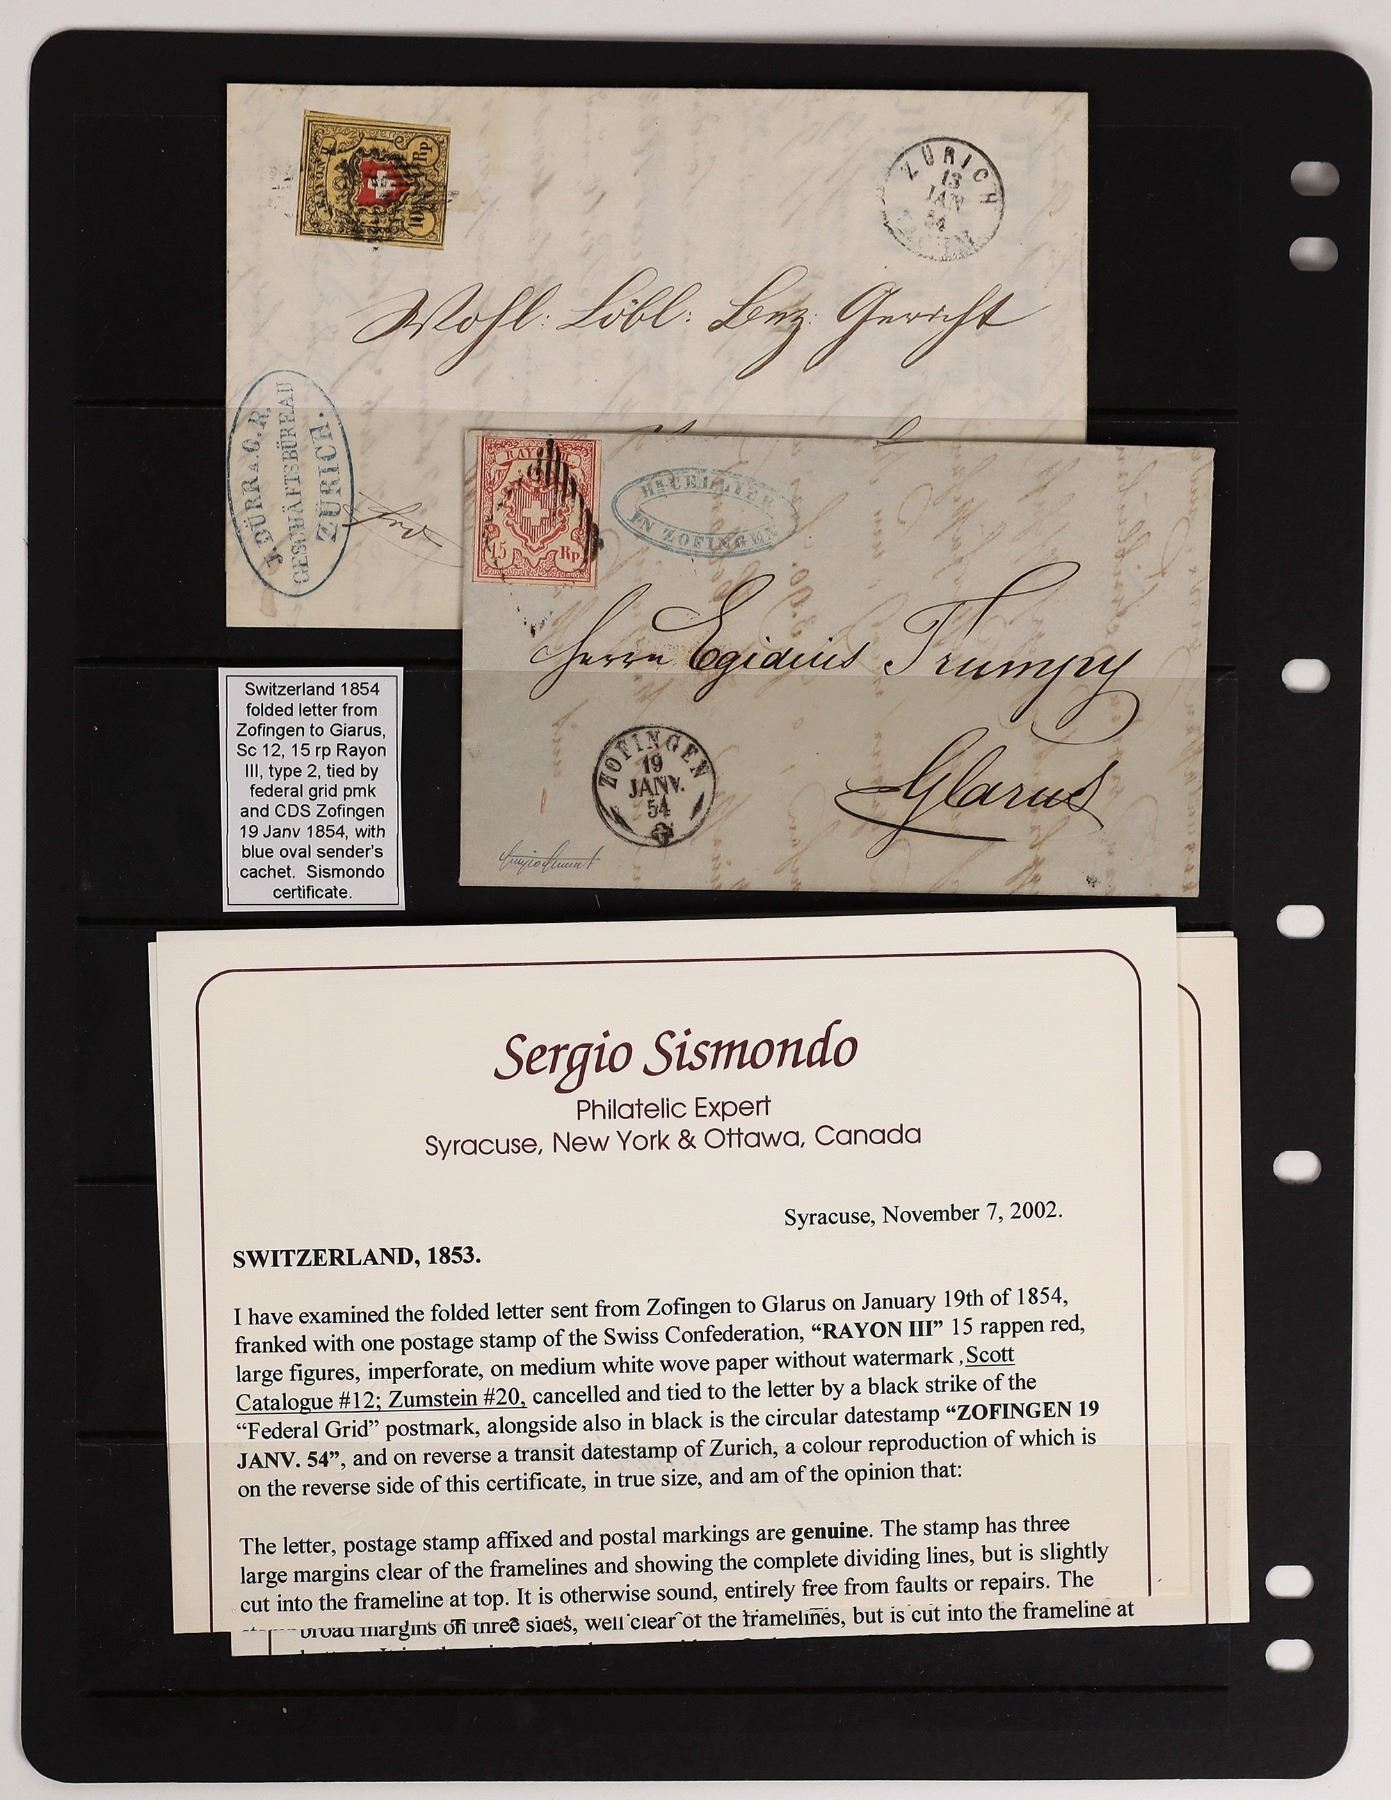 RAYON II
10 Rp
ZÜRICH
13
JAN
54
Wohl: Löbl: Bez: Gericht
J. DÜRR A.O.R.
GESCHÄFTSBÜREAU
ZÜRICH.
RAYON III
15 Rp
IN ZOFINGEN
Herrn Egidius Trumpy
Glarus
ZOFINGEN
19
JANV.
54
Switzerland 1854
folded letter from
Zofingen to Giarus,
Sc 12, 15 rp Rayon
III, type 2, tied by
federal grid pmk
and CDS Zofingen
19 Janv 1854, with
blue oval sender's
cachet. Sismondo
certificate.
Sergio Sismondo
Philatelic Expert
Syracuse, New York & Ottawa, Canada
Syracuse, November 7, 2002.
SWITZERLAND, 1853.
I have examined the folded letter sent from Zofingen to Glarus on January 19th of 1854,
franked with one postage stamp of the Swiss Confederation, “RAYON III” 15 rappen red,
large figures, imperforate, on medium white wove paper without watermark ,Scott
Catalogue #12; Zumstein #20, cancelled and tied to the letter by a black strike of the
“Federal Grid” postmark, alongside also in black is the circular datestamp “ZOFINGEN 19
JANV. 54”, and on reverse a transit datestamp of Zurich, a colour reproduction of which is
on the reverse side of this certificate, in true size, and am of the opinion that:
The letter, postage stamp affixed and postal markings are genuine. The stamp has three
large margins clear of the framelines and showing the complete dividing lines, but is slightly
cut into the frameline at top. It is otherwise sound, entirely free from faults or repairs. The
broad margins on three sides, well clear of the framelines, but is cut into the frameline at